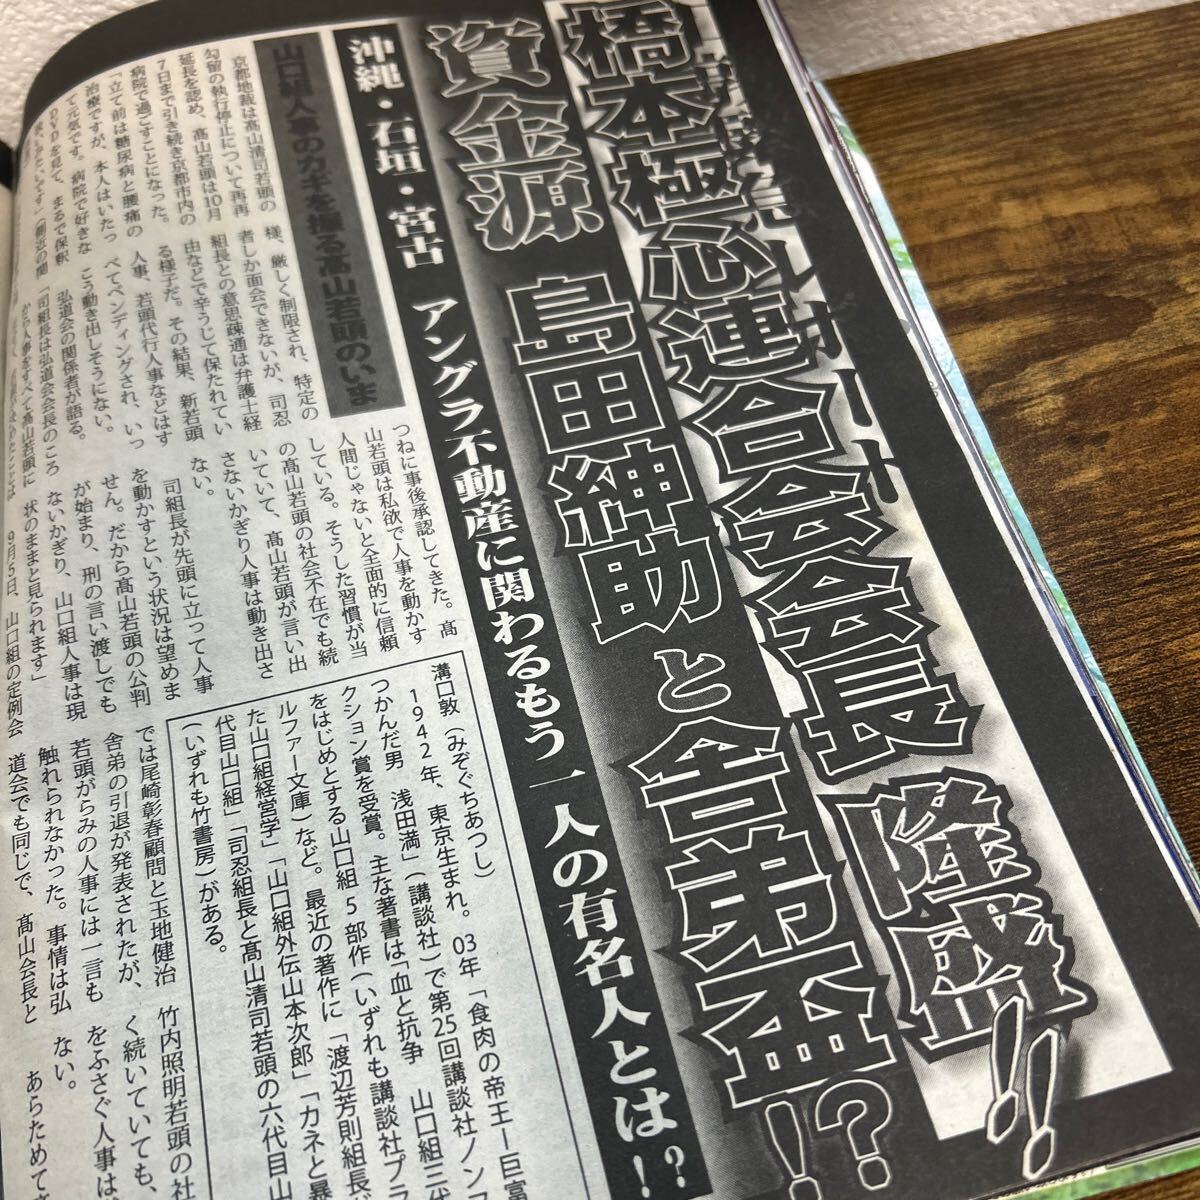 橋本極心連合会会長 隆盛!!
資金源 島田紳助と舎弟盃!?
沖縄・石垣・宮古 アングラ不動産に関わるもう一人の有名人とは!?
山口組人事のカギを握る髙山若頭のいま
京都地裁は髙山清司若頭の
勾留の執行停止について再再
延長を認め、髙山若頭は10月
7日まで引き続き京都市内の
病院で過ごすことになった。
「立て前は糖尿病と腰痛の
治療ですが、本人はいたっ
て元気です。病院で好きな
DVDを見て、まるで保釈
様、厳しく制限され、特定の
者しか面会できないが、司忍
組長との意思疎通は弁護士経
由などで辛うじて保たれてい
る様子だ。その結果、新若頭
人事、若頭代行人事などはす
べてペンディングされ、いっ
こう動き出しそうにない。
弘道会の関係者が語る。
「司組長は弘道会会長のころ
から人事をすべて髙山若頭に
つねに事後承認してきた。髙
山若頭は私欲で人事を動かす
人間じゃないと全面的に信頼
している。そうした習慣が当
の髙山若頭の社会不在でも続
いていて、髙山若頭が言い出
さないかぎり人事は動き出さ
ない。
司組長が先頭に立って人事
を動かすという状況は望めま
せん。だから髙山若頭の公判
が始まり、刑の言い渡しでも
ないかぎり、山口組人事は現
状のままと見られます」
9月5日、山口組の定例会
では尾崎彰春顧問と玉地健治
舎弟の引退が発表されたが、
若頭がらみの人事には一言も
触れられなかった。事情は弘
道会でも同じで、髙山会長と
竹内照明若頭の社
く続いていても、
をふさぐ人事は
ない。
あらためて
溝口敦(みぞぐちあつし)
1942年、東京生まれ。03年「食肉の帝王ー巨富
つかんだ男 浅田満」(講談社)で第25回講談社ノン
クション賞を受賞。主な著書は「血と抗争 山口組三代
をはじめとする山口組5部作(いずれも講談社プラ
ルファー文庫)など。最近の著作に「渡辺芳則組長が
た山口組経営学」「山口組外伝山本次郎」「カネと暴
代目山口組」「司忍組長と髙山清司若頭の六代目山
(いずれも竹書房)がある。